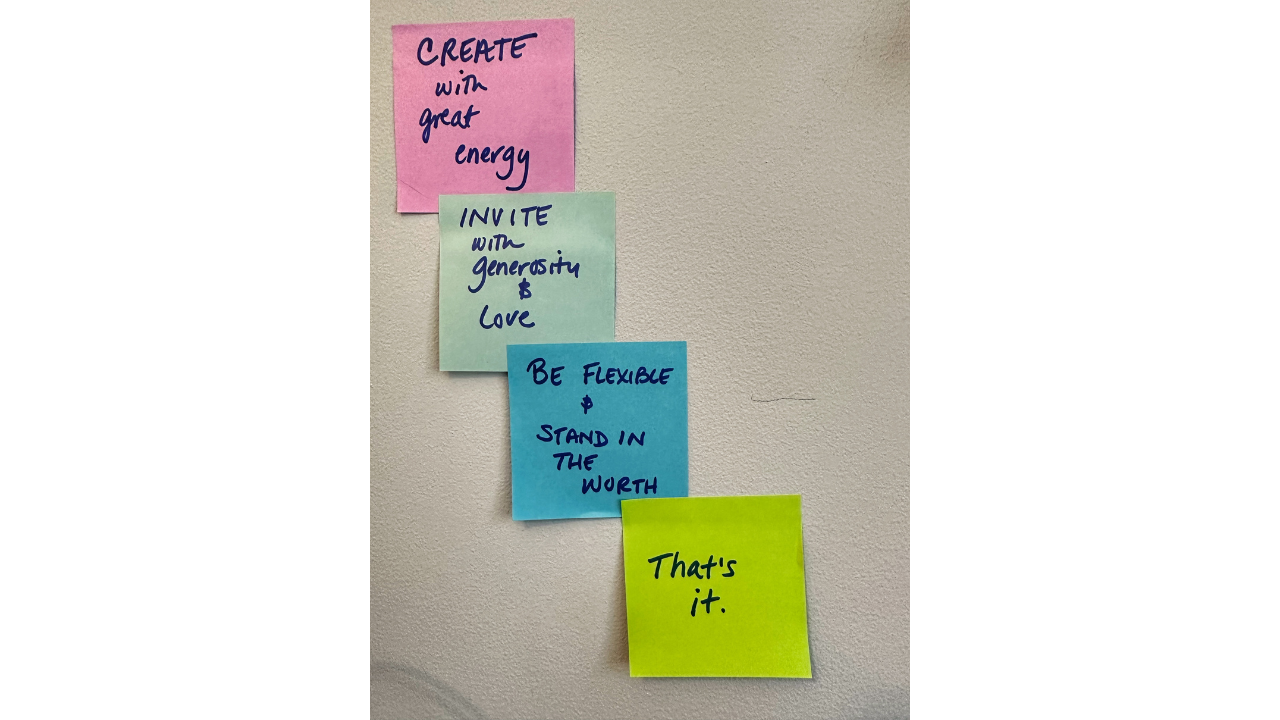 CREATE
with
great
energy
INVITE
with
generosity
&
Love
BE FLEXIBLE
&
STAND IN
THE
WORTH
That's
it.